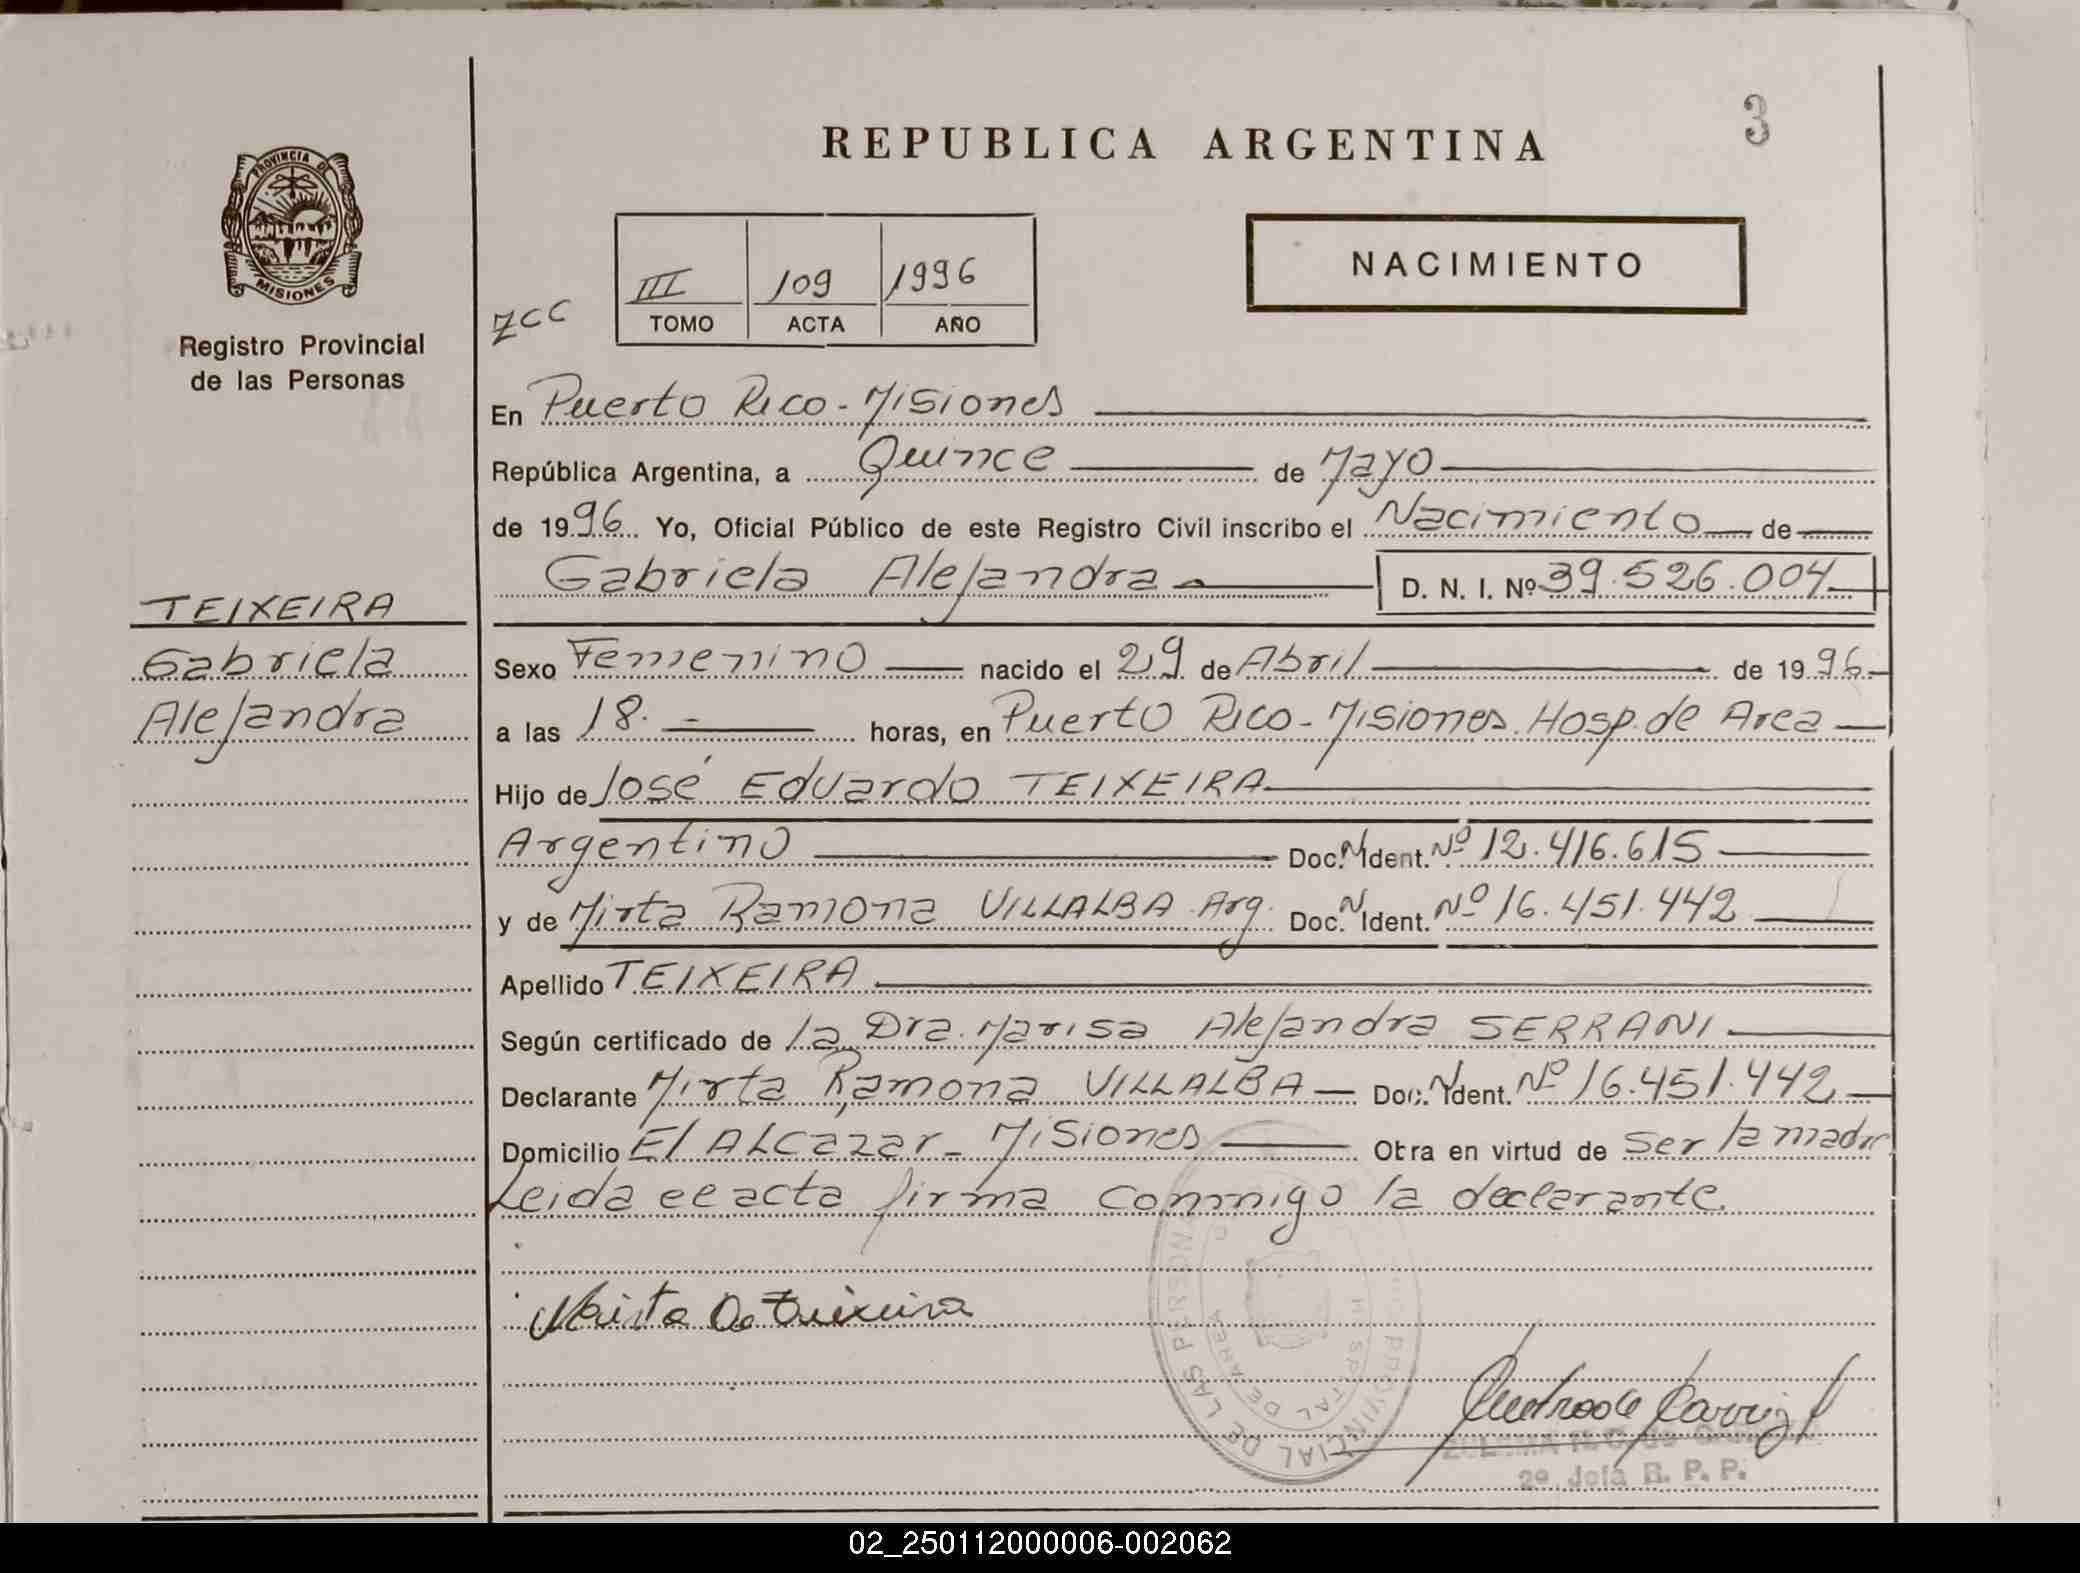 3
REPUBLICA ARGENTINA
PROVINCIA DE
MISIONES
Registro Provincial
de las Personas
NACIMIENTO
III 109 1996
TOMO ACTA AÑO
ZCC
En Puerto Rico - Misiones
República Argentina, a Quince de Mayo
de 1996 Yo, Oficial Público de este Registro Civil inscribo el Nacimiento de
Gabriela Alejandra D. N. I. Nº 39.526.004
TEIXEIRA
Gabriela
Alejandra
Sexo Femenino nacido el 29 de Abril de 1996
a las 18.- horas, en Puerto Rico - Misiones. Hosp. de Area
Hijo de José Eduardo TEIXEIRA
Argentino Doc. N. Ident. Nº 12.416.615
y de Mirta Ramona VILLALBA Arg. Doc. N. Ident. Nº 16.451.442
Apellido TEIXEIRA
Según certificado de la Dra. Marisa Alejandra SERRANI
Declarante Mirta Ramona VILLALBA Doc. N. Ident. Nº 16.451.442
Domicilio El ALcazar - Misiones Obra en virtud de ser la madre
Leida el acta firma conmigo la declarante.
Mirta De Teixeira
PROVINCIAL DE LAS PERSONAS
HOSPITAL DE AREA
2º Jefa R. P. P.
02_250112000006-002062